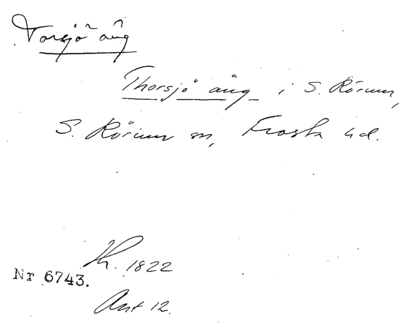 Torsjö äng
Thorsjö äng i S. Rörum,
S. Rörum sn, Frosta hd.
Kr. 1822
Nr 6743.
Akt 12.